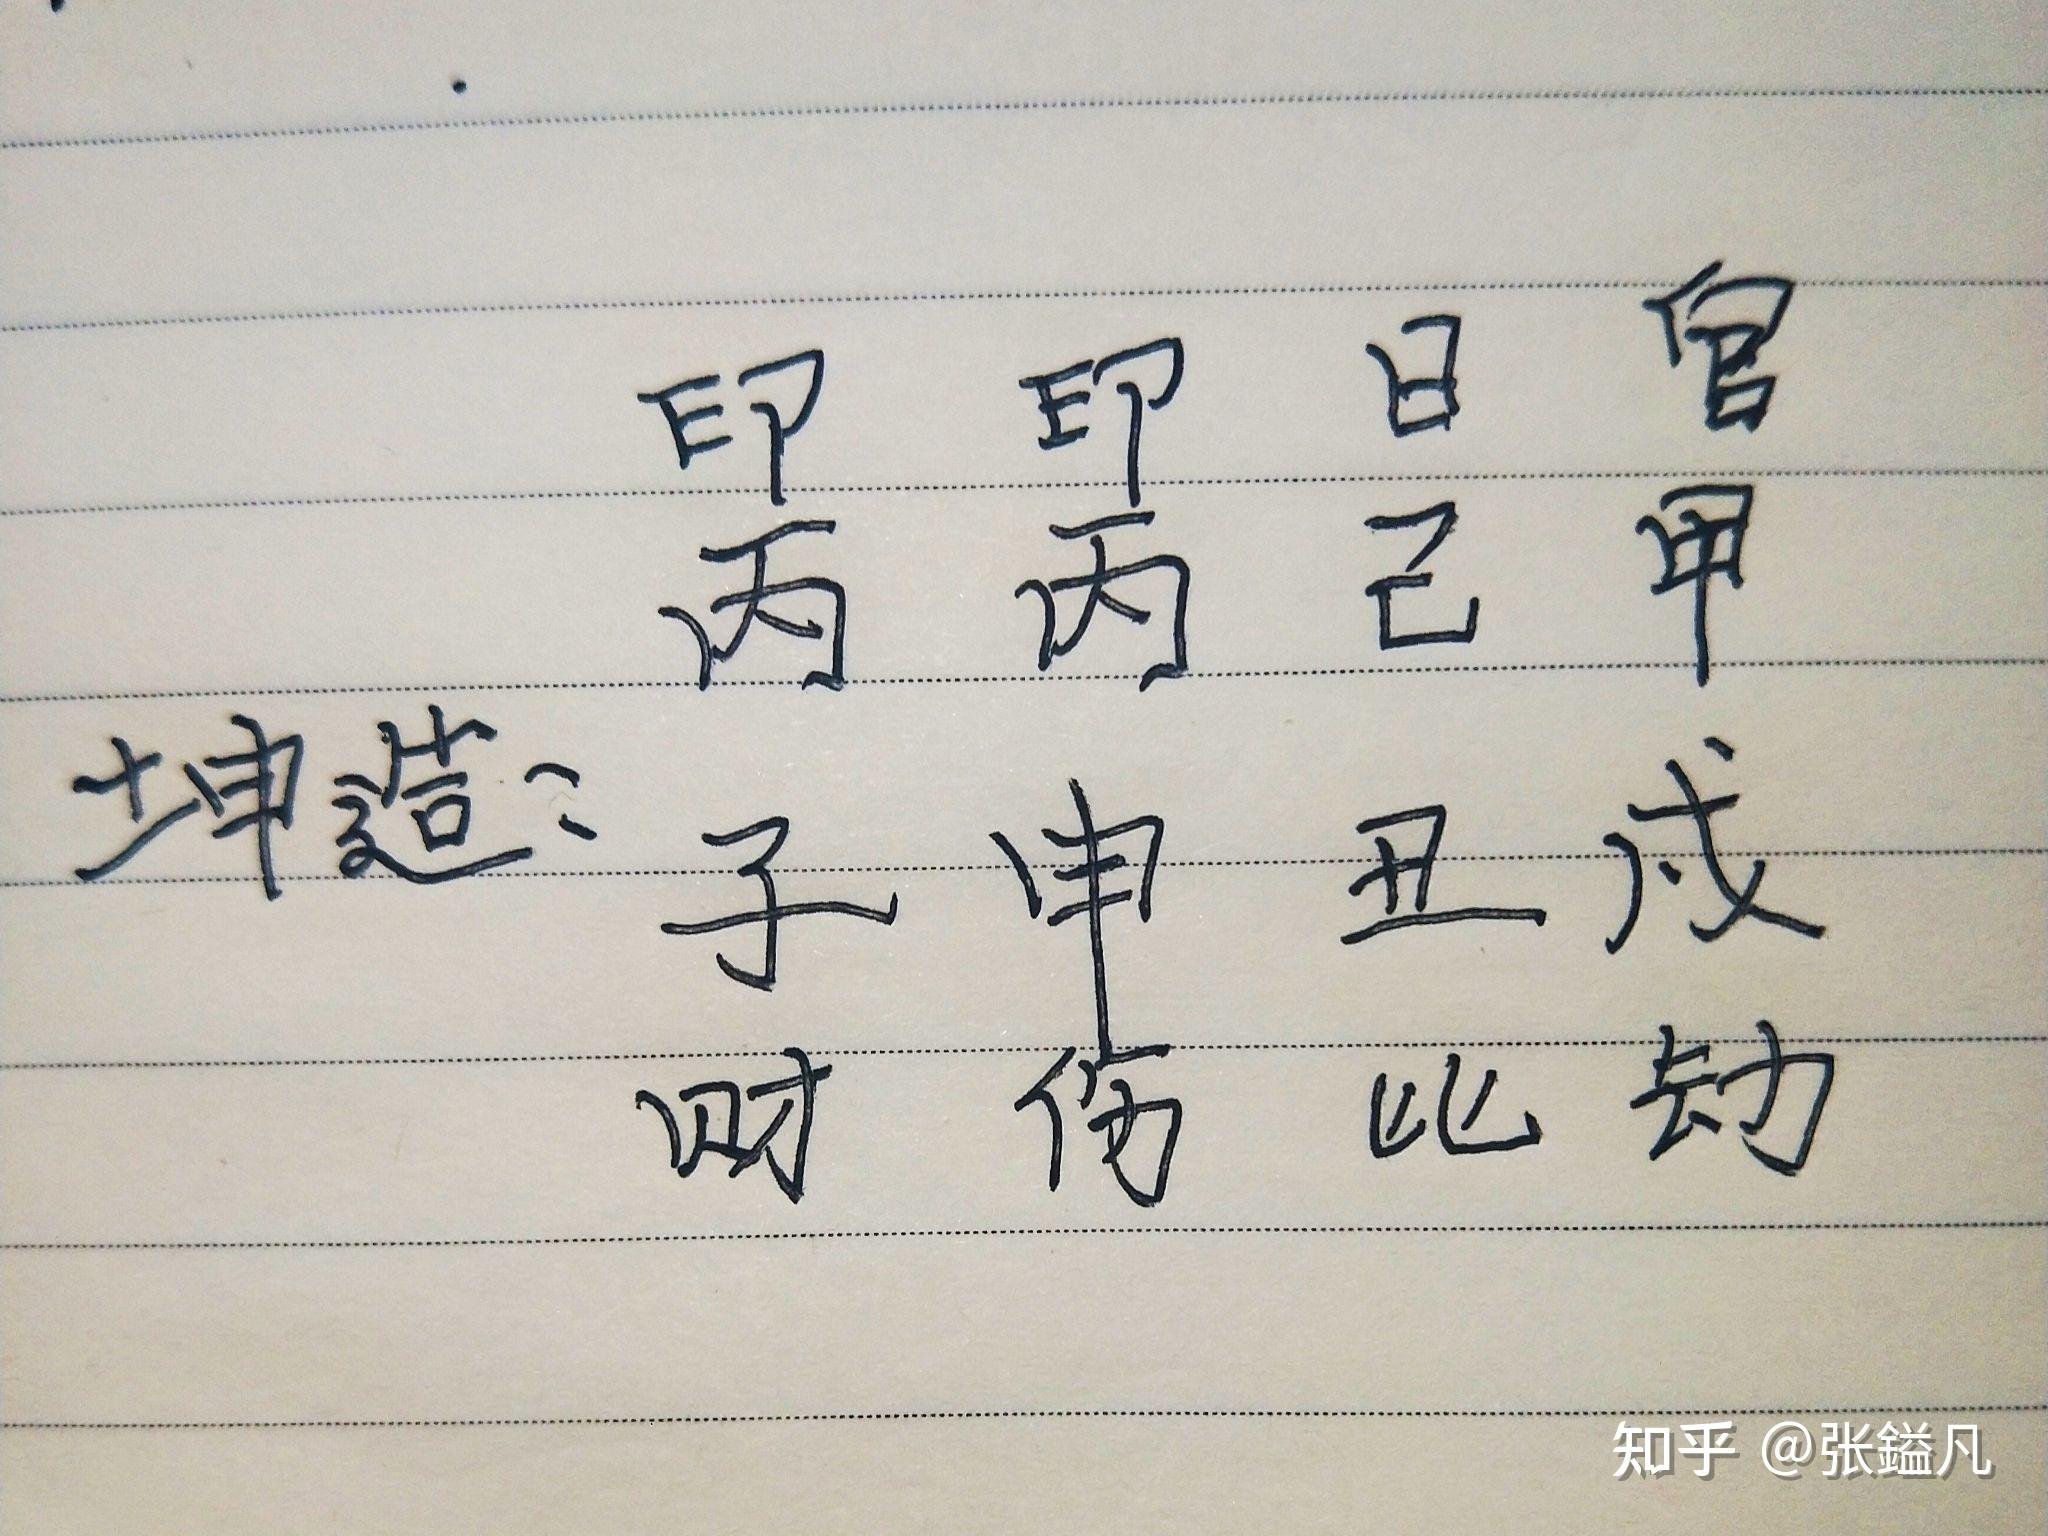 印 印 日 官
丙 丙 己 甲
坤造：子 申 丑 戌
财 伤 比 劫
知乎 @张鎰凡